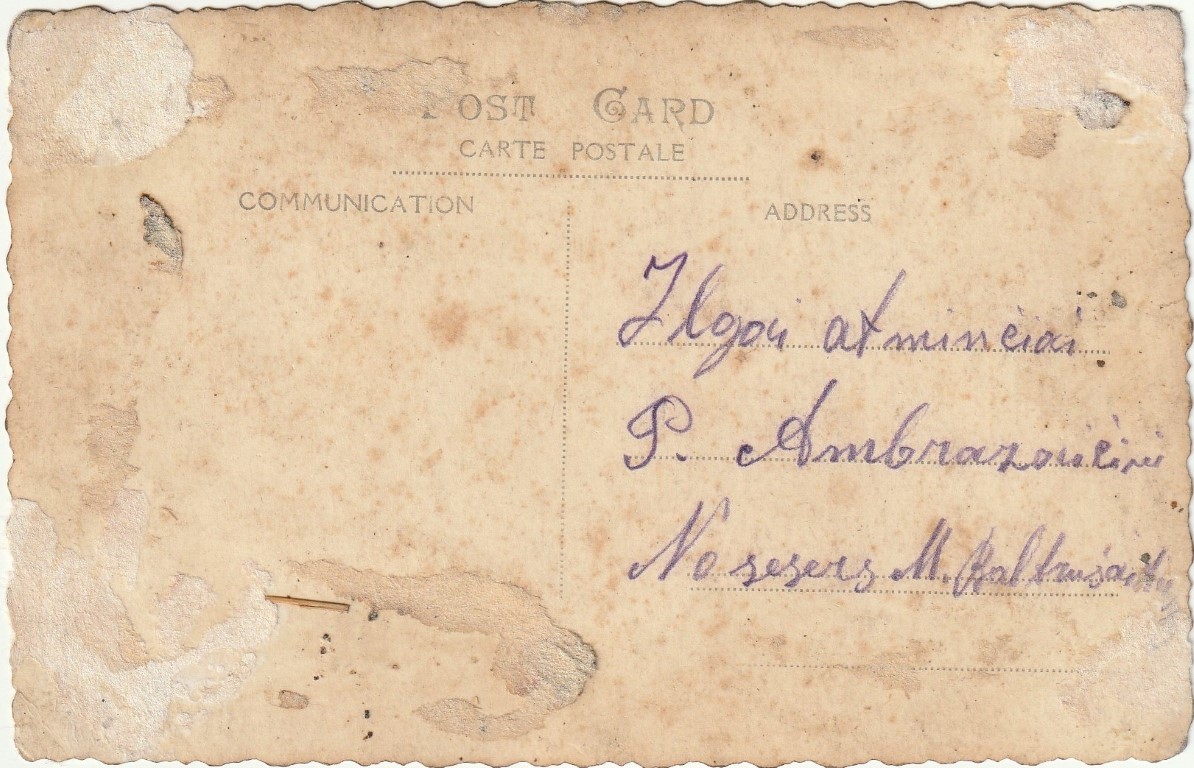 POST CARD
CARTE POSTALE
COMMUNICATION
ADDRESS
Ilgai atminčiai
P. Ambrazaičiui
No sesers M.